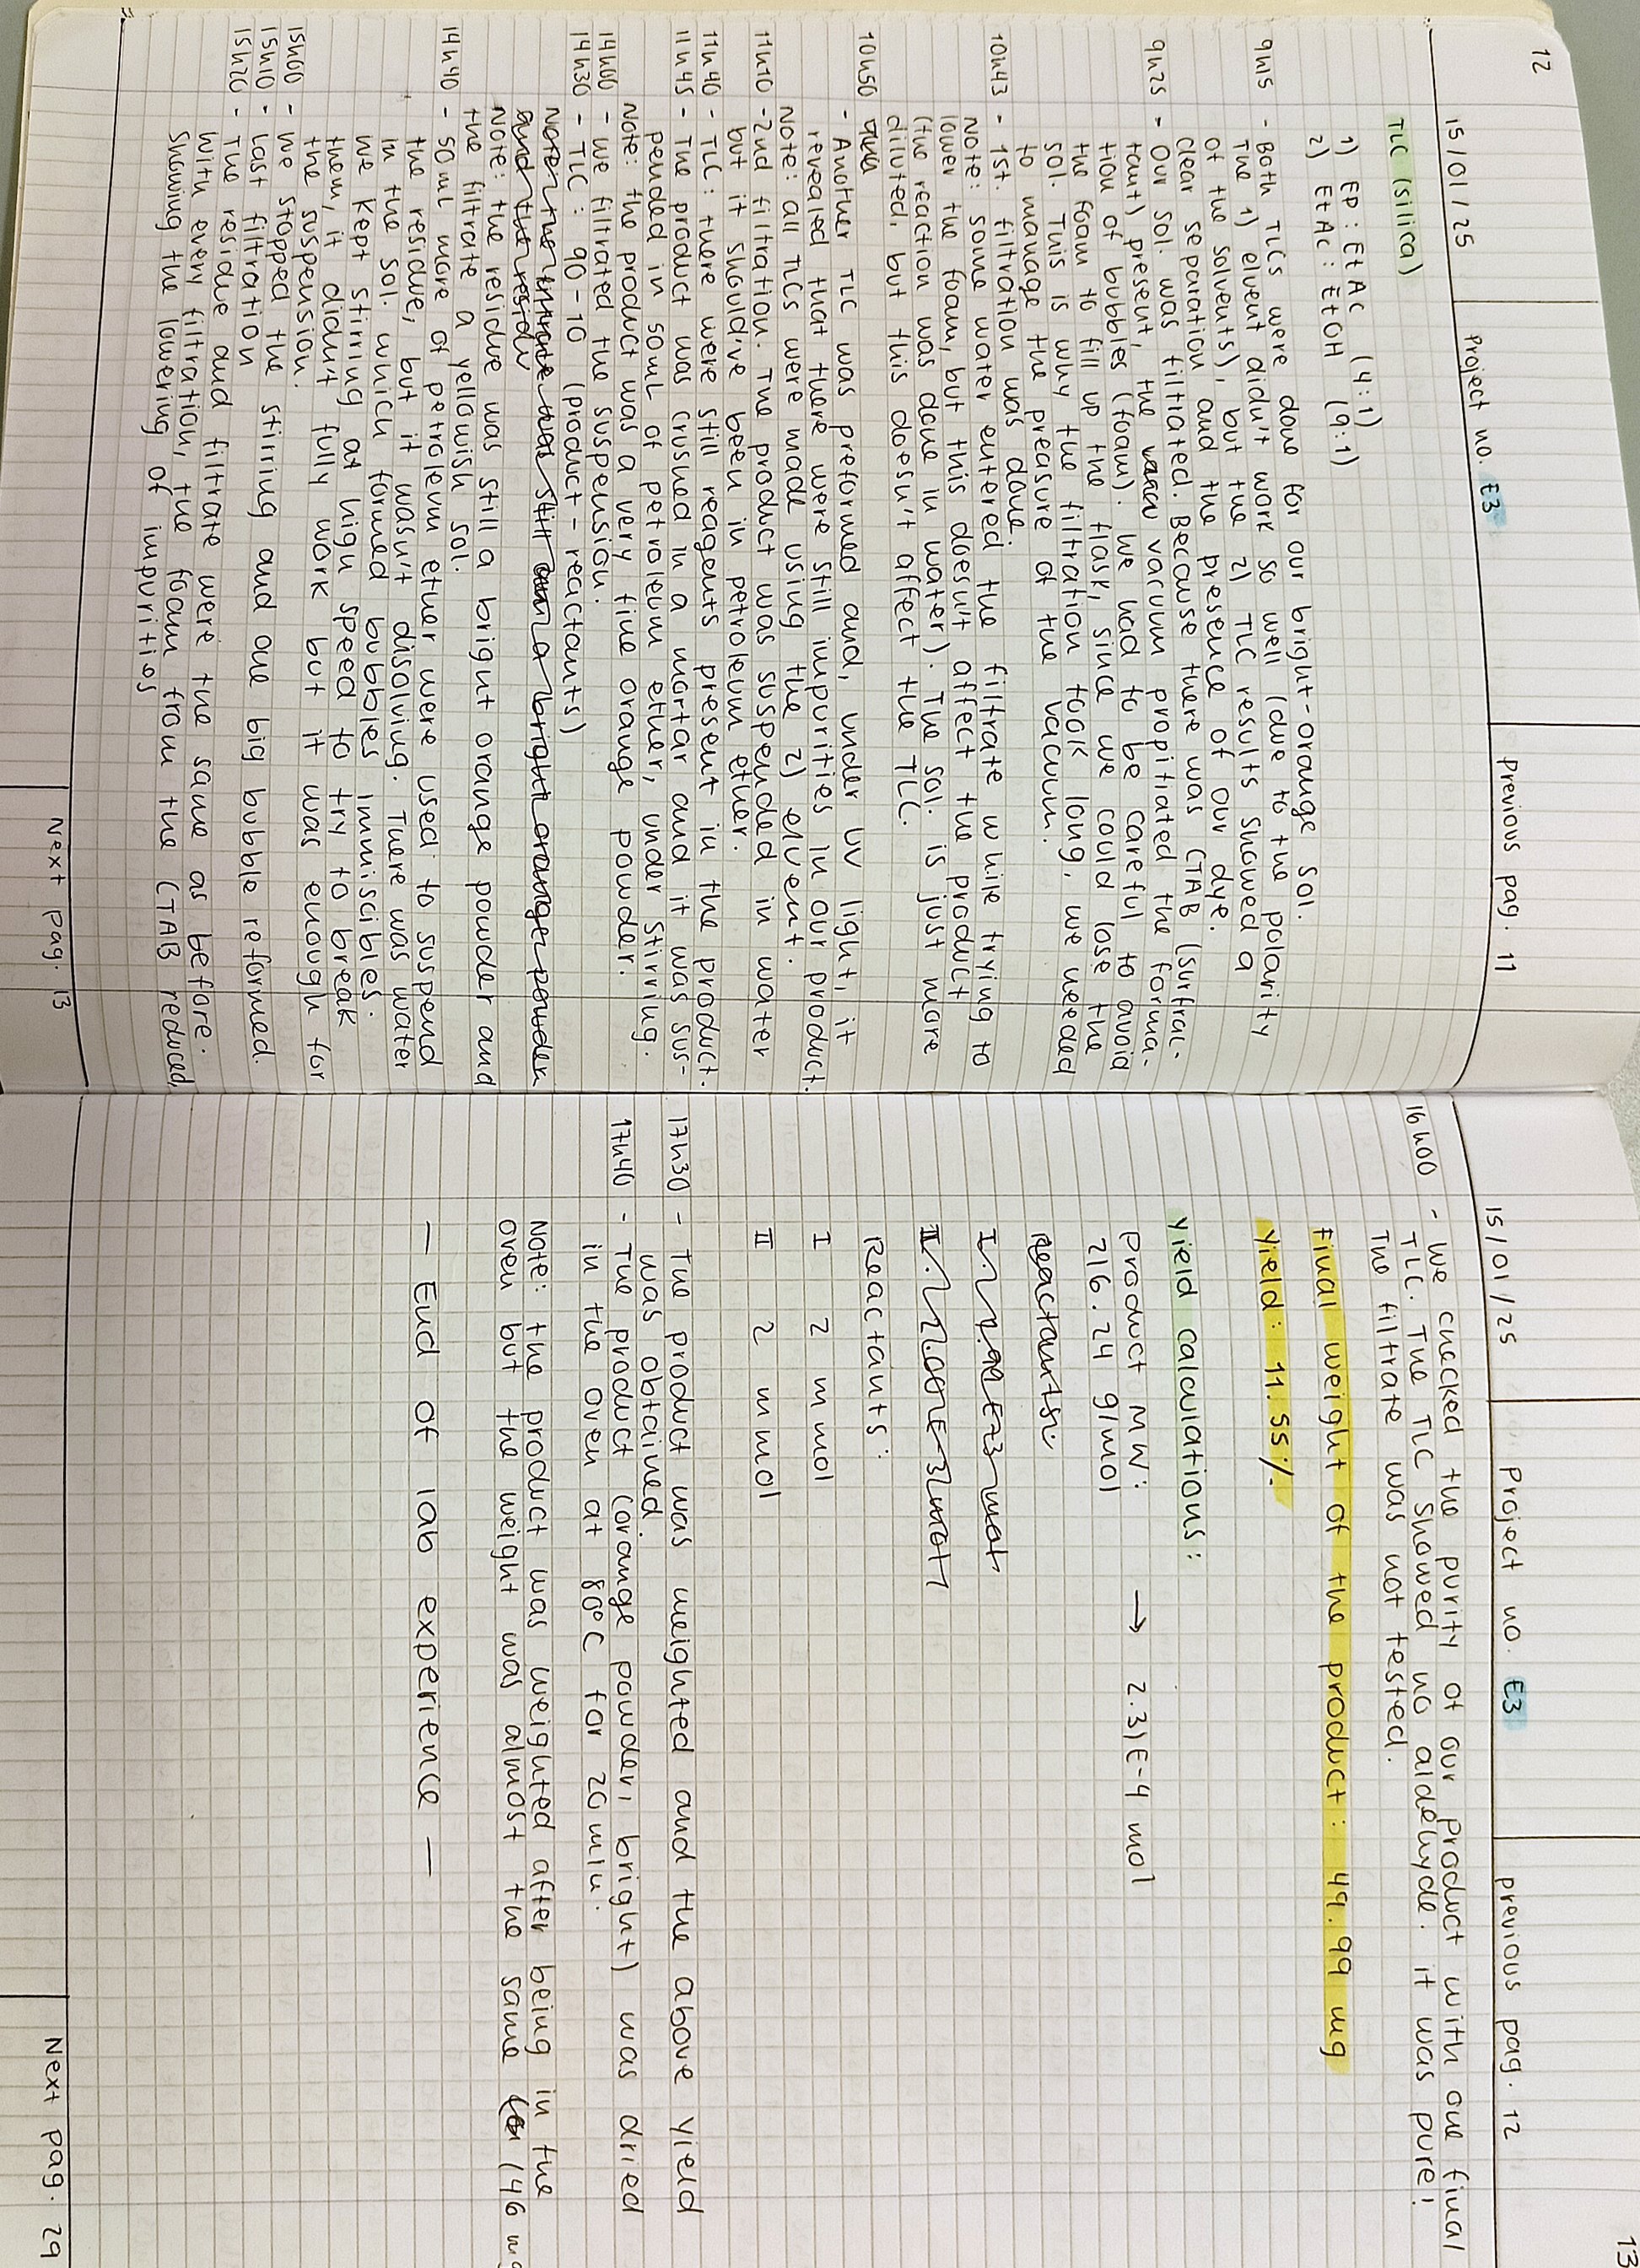 12
15/01/25
Project no. E3
previous pag. 11
TLC (silica)
1) EP : EtAc (4:1)
2) EtAc : EtOH (9:1)
9h15 - Both TLCs were done for our bright-orange sol.
The 1) eluent didn't work so well (due to the polarity
of the solvents), but the 2) TLC results showed a
clear separation and the presence of our dye.
9h25 - Our sol. was filtrated. Because there was CTAB (surfac-
tant) present, the vacuum propitiated the forma-
tion of bubbles (foam). We had to be careful to avoid
the foam to fill up the flask, since we could lose the
sol. This is why the filtration took long, we needed
to manage the preasure of the vacuum.
10h43 - 1st. filtration was done.
Note: some water entered the filtrate while trying to
lower the foam, but this doesn't affect the product
(the reaction was done in water). The sol. is just more
diluted, but this doesn't affect the TLC.
10h50 - Another TLC was preformed and, under UV light, it
revealed that there were still impurities in our product.
Note: all TLCs were made using the 2) eluent.
11h10 - 2nd filtration. The product was suspended in water
but it should've been in petroleum ether.
11h40 - TLC: there were still reagents present in the product.
11h45 - The product was crushed in a mortar and it was sus-
pended in 50mL of petroleum ether, under stirring.
Note: the product was a very fine orange powder.
14h00 - We filtrated the suspension.
14h30 - TLC : 90-10 (product - reactants)
Note: the filtrate was still a bright orange powder
and the residu
Note: the residue was still a bright orange powder and
the filtrate a yellowish sol.
14h40 - 50 mL more of petroleum ether were used to suspend
the residue, but it wasn't disolving. There was water
in the sol. which formed bubbles immiscibles.
We kept stirring at high speed to try to break
them, it didn't fully work but it was enough for
the suspension.
15h00 - We stopped the stirring and one big bubble reformed.
15h10 - Last filtration
15h20 - The residue and filtrate were the same as before.
With every filtration, the foam from the CTAB reduced,
showing the lowering of impurities
Next pag. 13
13
15/01/25
Project no. E3
previous pag. 12
16h00 - We checked the purity of our product with one final
TLC. The TLC showed no aldehyde. it was pure!
The filtrate was not tested.
Final weight of the product: 49.99 mg
Yield: 11.55%
Yield calculations:
Product MW:
216.24 g/mol → 2.31E-4 mol
Reactants:
Reactants:
I 2 mmol
II 2 mmol
17h30 - The product was weighted and the above yield
was obtained.
17h40 - The product (orange powder, bright) was dried
in the oven at 80°C for 20 min.
Note: the product was weighted after being in the
oven but the weight was almost the same (46 mg
— End of lab experience —
Next pag. 29